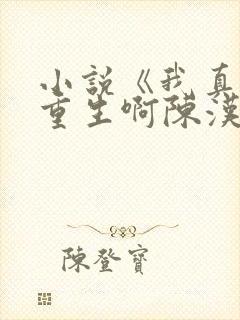 小說《我真
重生啊陳漢
陳登寶